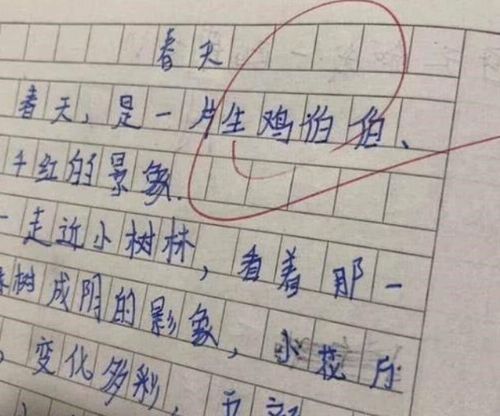 春天
春天,是一片生鸡伯伯、
千红的景象.
一走近小树林,看着那一
树成阴的影象,小花
,变化多彩,五